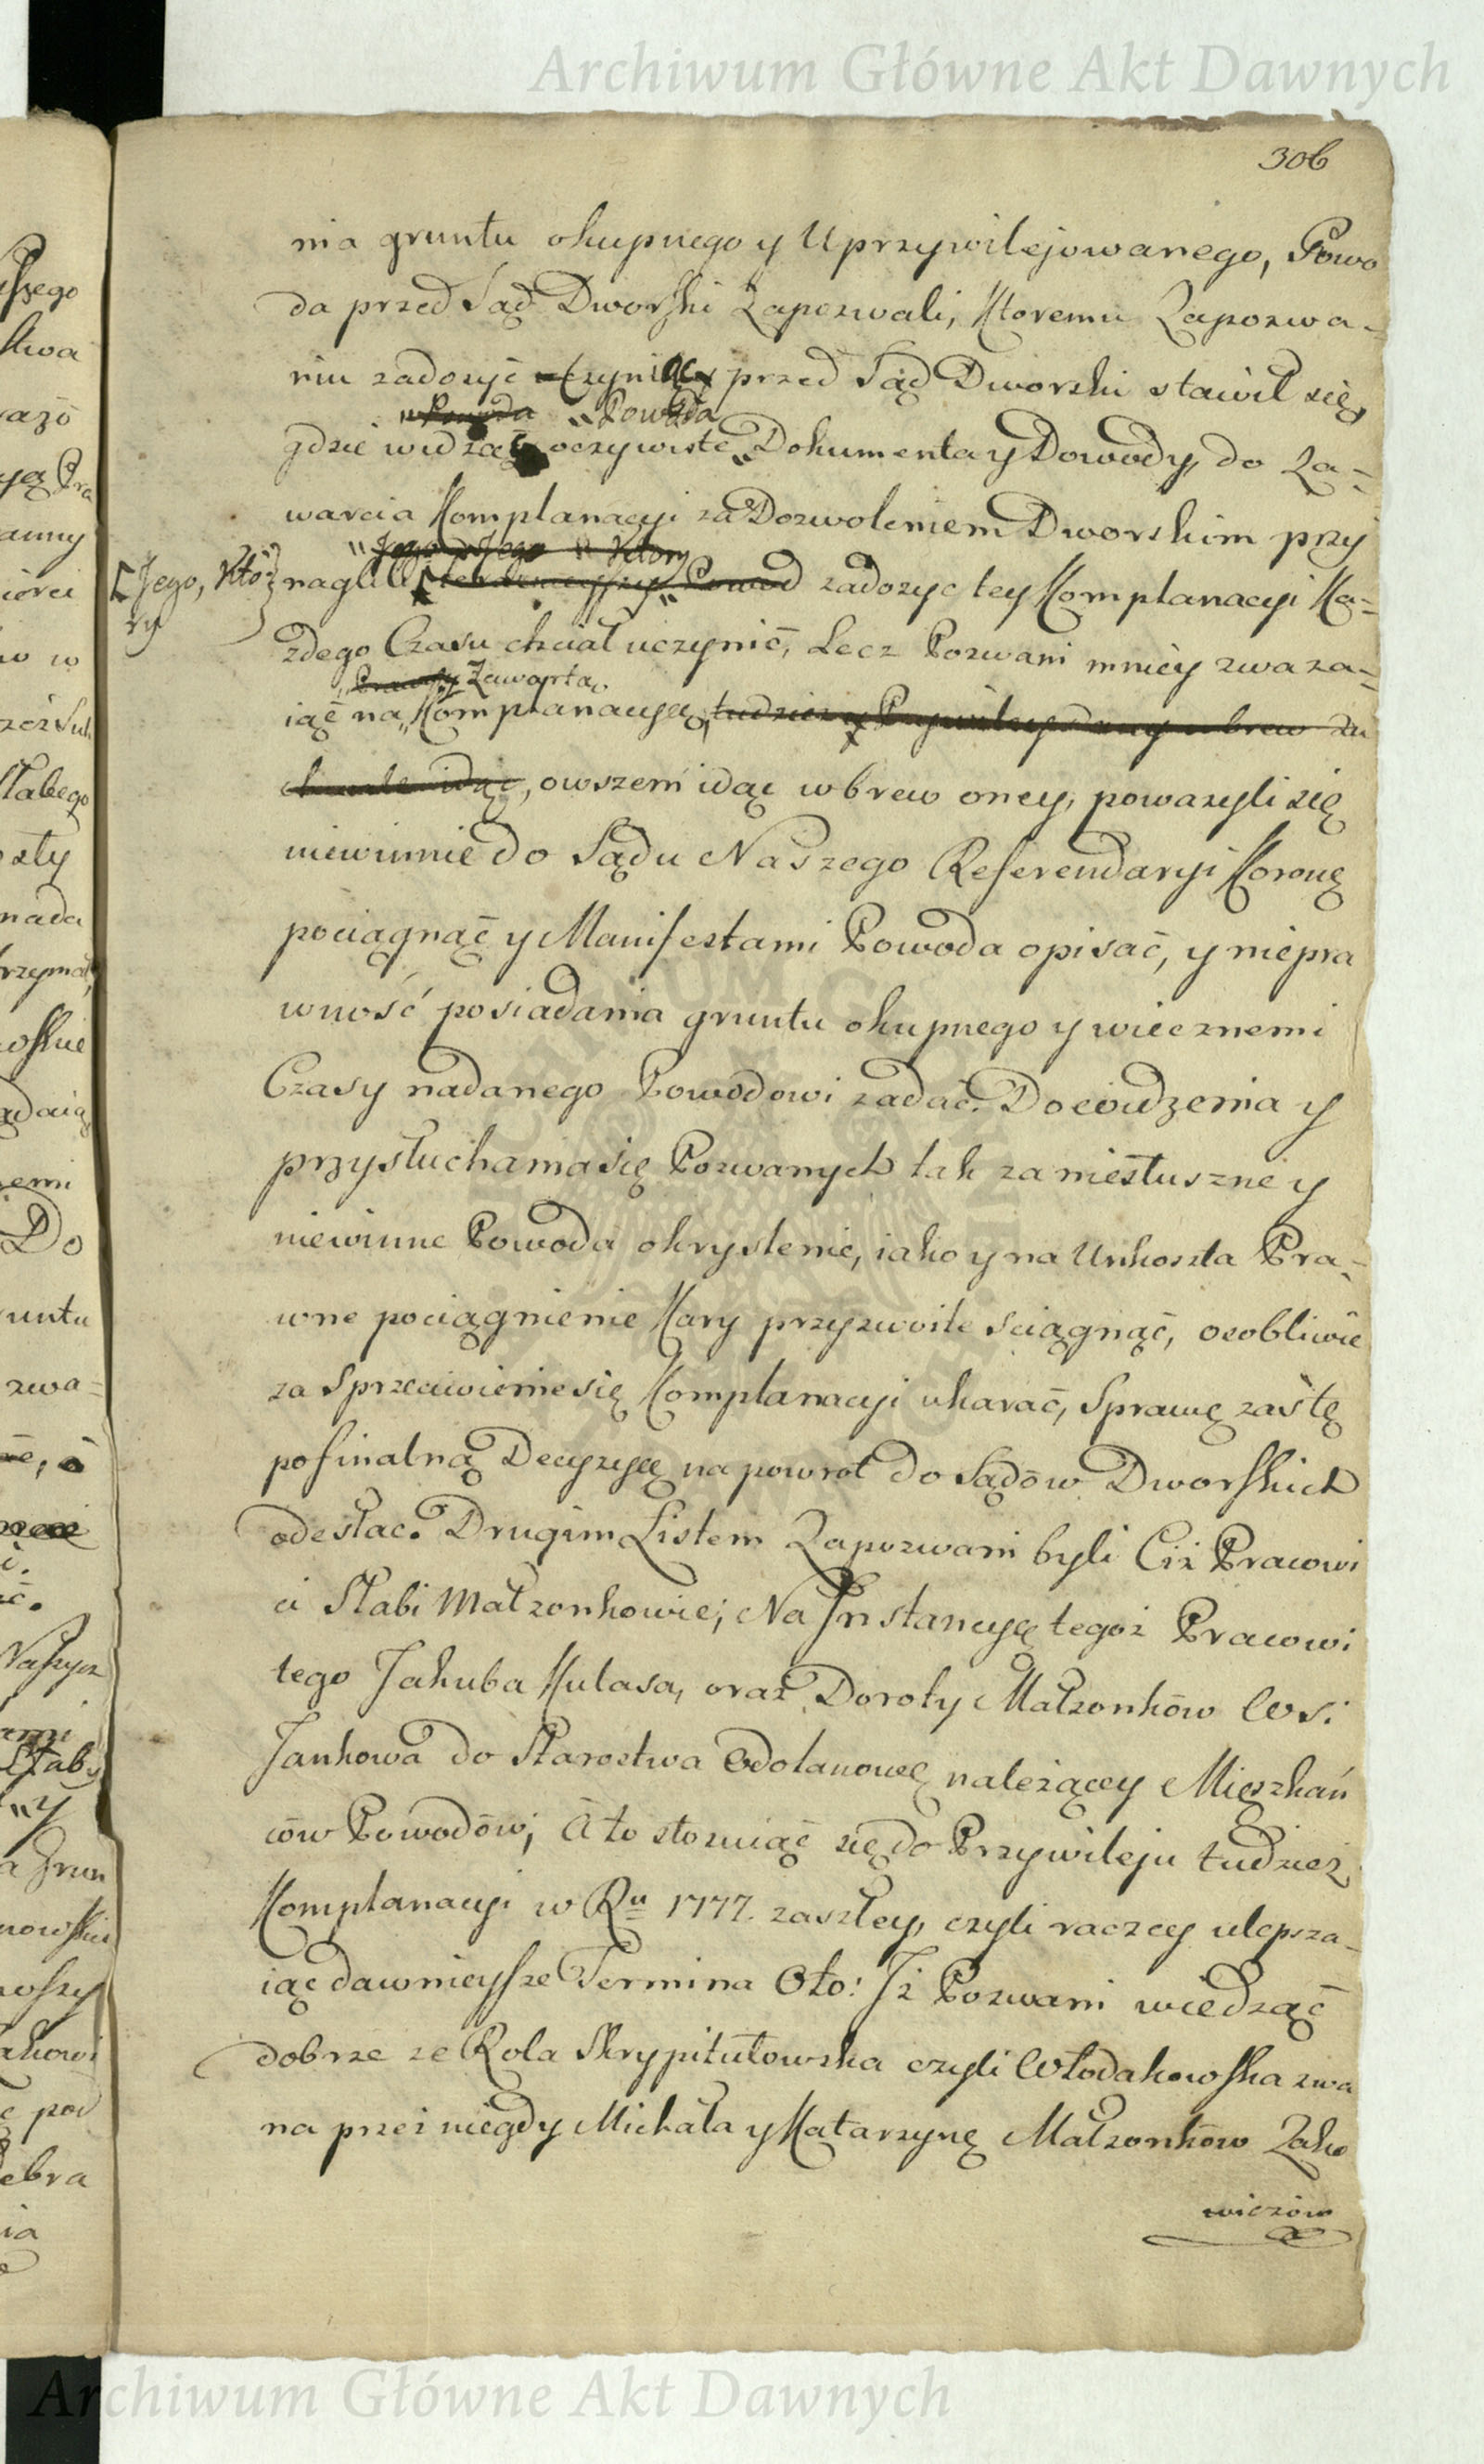 Archiwum Główne Akt Dawnych
306
nia gruntu okupnego y Uprzywilejowanego, Powo
da przed Sąd Dworski Zapozwali, Ktoremu Zapozwa-
niu zadosyć czyniąc, przed Sąd Dworski stawił się,
Powoda Powoda
gdzie widząc oczywiste Dokumenta y Dowody, do Za-
warcia Komplanacyi za Dozwoleniem Dworskim przy
Jego Jego Ktory
[Jego, Kto-
ry
naglili Powod zadosyc tey Komplanacyi Ka-
zdego Czasu chciał uczynić, Lecz Pozwani mniey zwaza-
Zawartą
iąć na Komplanacyę, tudziesz wbrew
idąc, owszem idąc wbrew oney, powazyli się
niewinnie do Sądu Naszego Referendaryi Koronę
pociągnąć y Manifestami Powoda opisać, y niepra
wność posiadania gruntu okupnego y wiecznemi
Czasy nadanego Powodowi zadać. Do widzenia y
przysłuchania się Pozwanych tak za niesłuszne y
niewinne Powoda okryslenie, iako y na Unkoszta Pra-
wne pociągnienie Kary przyzwoite sciągnąć, osobliwie
za Sprzeciwienie się Komplanacyi ukarać, Sprawę zaś tę
po finalną Decyzyę na powrot do Sądów Dworskich
odesłac. Drugim Listem Zapozwani byli Ciż Pracowi
ci Słabi Małzonkowie; Na Instancyę tegoż Pracowi
tego Jakuba Kulasa, oraz Doroty Małzonków Wsi
Jankowa do Starostwa Odolanowę należącey Mięszkań
ców Powodów; A to stosuiąć się do Przywileju tudziez
Komplanacyi w Ru 1777. zaszłey, czyli raczey ulepsza-
iąc dawnieysze Termina Oto: Iż Pozwani wiedząć
dobrze ze Rola Skrypitułowska czyli Włodakowska zwa
na przez niegdy Michała y Katarzynę Małzonków Zako
wiczów
Archiwum Główne Akt Dawnych